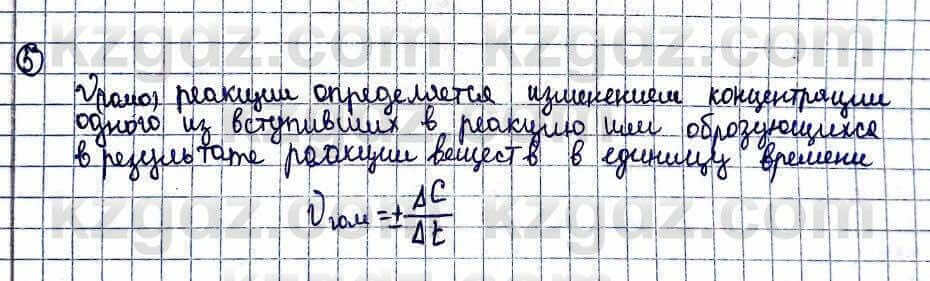 5
V гомог реакции определяется изменением концентрации
одного из вступивших в реакцию или образующихся
в результате реакции веществ в единицу времени
V гом = ± ΔC/Δt
kzgdz.com